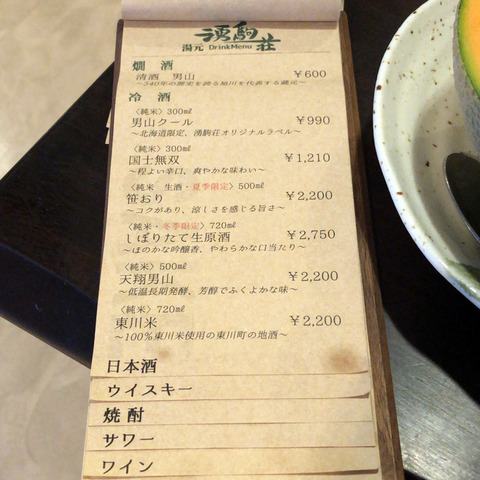 湯元 湧駒荘
DrinkMenu
燗 酒
清酒 男山 ￥600
～340年の歴史を誇る旭川を代表する蔵元～
冷 酒
〈純米〉300㎖
男山クール ￥990
～北海道限定、湧駒荘オリジナルラベル～
〈純米〉300㎖
国士無双 ￥1,210
～程よい辛口、爽やかな味わい～
〈純米 生酒・夏季限定〉500㎖
笹おり ￥2,200
～コクがあり、涼しさを感じる旨さ～
〈純米・冬季限定〉720㎖
しぼりたて生原酒 ￥2,750
～ほのかな吟醸香、やわらかな口当たり～
〈純米〉500㎖
天翔男山 ￥2,200
～低温長期発酵、芳醇でふくよかな味～
〈純米〉720㎖
東川米 ￥2,200
～100％東川米使用の東川町の地酒～
日本酒
ウイスキー
焼酎
サワー
ワイン